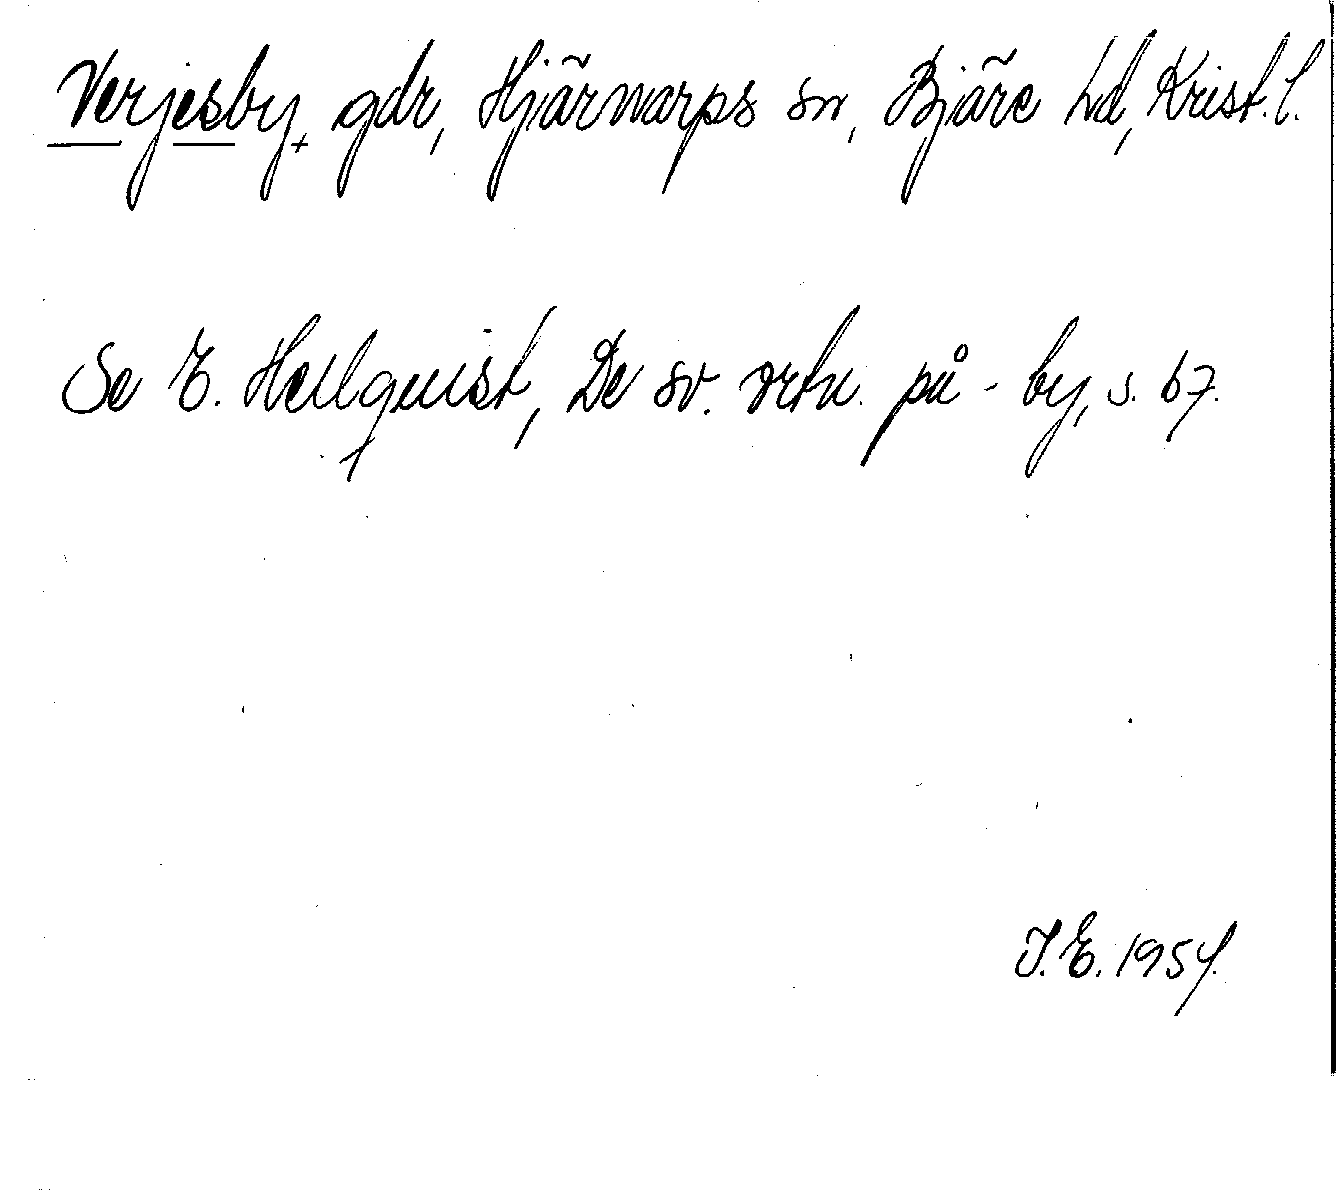 Verjesby, gdr, Hjärnarps sn, Bjäre hd, Krist. l.
Se E. Hellquist, De sv. ortn. på - by, s. 67.
J.E. 1954.